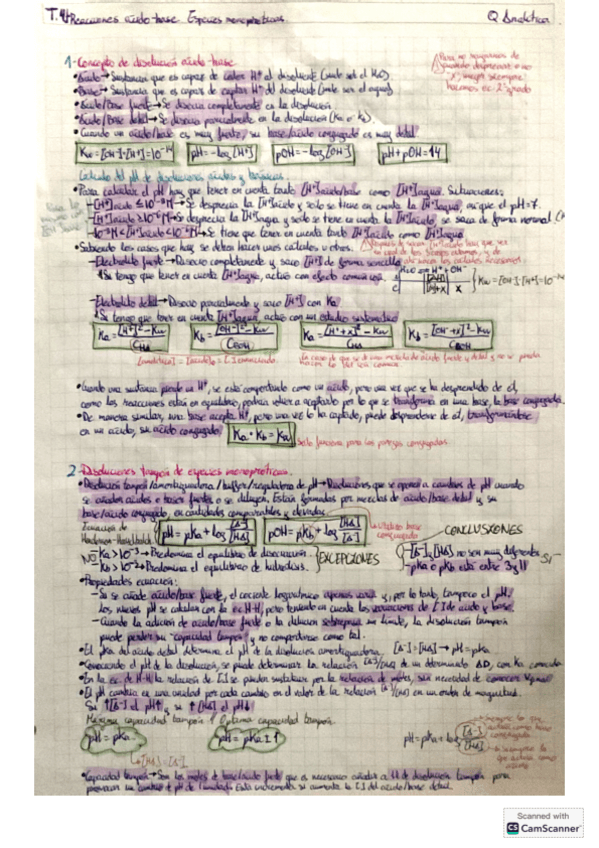 T.4 Reacciones ácido-base. Especies monopróticas. Q Analítica.
1-Concepto de disolución ácido-base.
•Ácido→Sustancia que es capaz de ceder H⁺ al disolvente (suele ser el H₂O).
•Base→Sustancia que es capaz de captar H⁺ del disolvente (suele ser el agua).
•Ácido/Base fuerte→Se disocia completamente en la disolución.
•Ácido/Base débil→Se disocia parcialmente en la disolución (Ka o Kb).
•Cuando un ácido/base es muy fuerte, su base/ácido conjugado es muy débil.
Kw=[OH⁻]·[H⁺]=10⁻¹⁴ pH=-log[H⁺] pOH=-log[OH⁻] pH+pOH=14
Cálculo del pH de disoluciones ácidas y básicas.
•Para calcular el pH hay que tener en cuenta tanto [H⁺]ácido/base como [H⁺]agua. Situaciones:
→Se desprecia la [H⁺]ácido y solo se tiene en cuenta la [H⁺]agua, así que el pH=7.
→Se desprecia la [H⁺]agua y solo se tiene en cuenta la [H⁺]ácido, se saca de forma normal.
→Se tiene que tener en cuenta tanto [H⁺]ácido como [H⁺]agua
•Sabiendo los casos que hay se deben hacer unos cálculos u otros.
-Electrolito fuerte→Disocio completamente y saco [H⁺] de forma sencilla
Si tengo que tener en cuenta [H⁺]agua, actúo con efecto común
Kw=[OH⁻]·[H⁺]=10⁻¹⁴
-Electrolito débil→Disocio parcialmente y saco [H⁺] con Ka
Si tengo que tener en cuenta [H⁺]agua, actúo con un estudio sistemático
•Cuando una sustancia pierde un H⁺, se está comportando como un ácido, pero una vez que se ha desprendido de él,
como las reacciones están en equilibrio, podría volver a aceptarlo por lo que se transforma en una base, la base conjugada.
•De manera similar, una base acepta H⁺, pero una vez lo ha captado, puede desprenderse de él, transformándose
en un ácido, su ácido conjugado. Ka·Kb=Kw Solo funciona para los pares conjugados
2-Disoluciones tampón de especies monopróticas.
•Disolución tampón/amortiguadora/buffer/reguladora de pH→Disoluciones que se oponen a cambios de pH cuando
se añaden ácidos o bases fuertes o se diluyen. Están formadas por mezclas de ácido/base débil y su
base/ácido conjugado, en cantidades comparables y elevadas.
Ecuación de Henderson-Hasselbalch pH=pKa+log [A⁻]/[HA] pOH=pKb+log [HA]/[A⁻]
CONCLUSIONES
NO -Ka>10⁻³→Predomina el equilibrio de disociación.
Predomina el equilibrio de hidrólisis. EXCEPCIONES
-[A⁻] y [HA] no son muy diferentes
-pKa o pKb está entre 3 y 11 SI
•Propiedades ecuación:
-Si se añade ácido/base fuerte, el cociente logarítmico apenas varía y, por lo tanto, tampoco el pH.
Los nuevos pH se calculan con la ec. H-H, pero teniendo en cuenta las variaciones de [ ] de ácido y base.
-Cuando la adición de ácido/base fuerte o la dilución sobrepasa un límite, la disolución tampón
puede perder su "capacidad tampón" y no comportarse como tal.
•El pKa del ácido débil determina el pH de la disolución amortiguadora. [A⁻]=[HA]→pH=pKa
•Conociendo el pH de la disolución, se puede determinar la relación [A⁻]/[HA] de un determinado AD, con Ka conocida
•En la ec. de H-H la relación de [ ] se pueden sustituir por la relación de moles, sin necesidad de conocer Vfinal
•El pH cambia en una unidad por cada cambio en el valor de la relación [A⁻]/[HA] en un orden de magnitud.
Si ↑[A⁻] el pH↑ y si ↑[HA] el pH↓
Máxima capacidad tampón Óptima capacidad tampón.
pH=pKa pH=pKa±1
[HA]=[A⁻]
pH=pKa+log [A⁻]/[HA]
•Capacidad tampón→Son los moles de base/ácido fuerte que es necesario añadir a 1L de disolución tampón para
provocar un cambio de pH de 1 unidad. Esta incrementa si aumenta la [ ] del ácido/base débil.
Scanned with
CS CamScanner